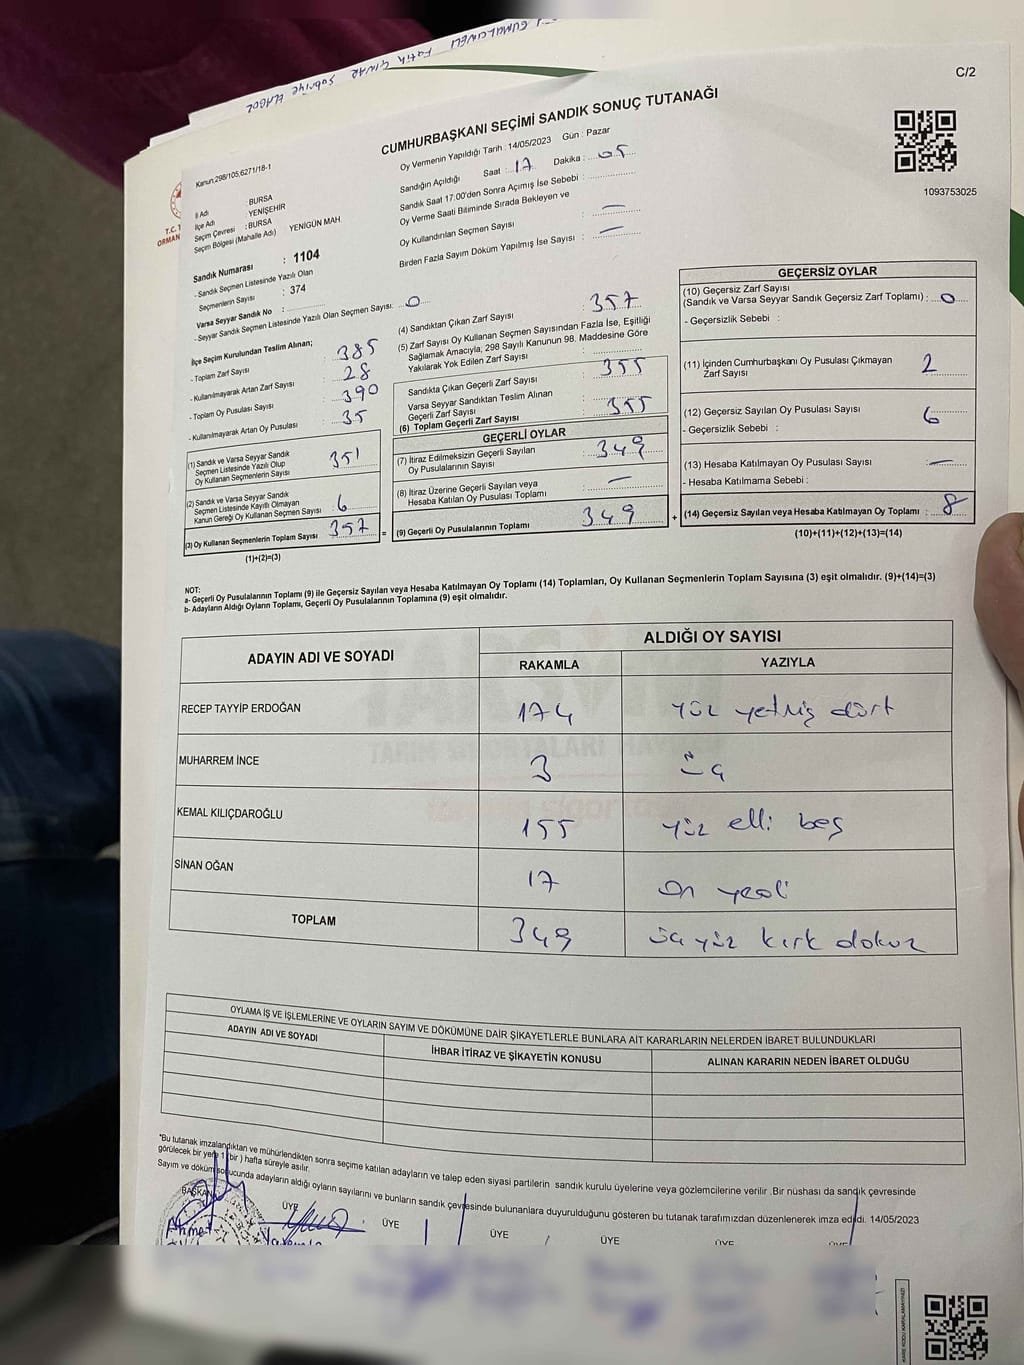 C/2
CUMHURBAŞKANI SEÇİMİ SANDIK SONUÇ TUTANAĞI
1093753025
Kanun,298/105,6271/18-1
T.C. T
ORMAN
İl Adı : BURSA
İlçe Adı : YENİŞEHİR
Seçim Çevresi : BURSA
Seçim Bölgesi (Mahalle Adı) YENİGÜN MAH
Sandık Numarası : 1104
- Sandık Seçmen Listesinde Yazılı Olan
Seçmenlerin Sayısı : 374
Varsa Seyyar Sandık No :
- Seyyar Sandık Seçmen Listesinde Yazılı Olan Seçmen Sayısı: 0
Oy Vermenin Yapıldığı Tarih : 14/05/2023 Gün : Pazar
Sandığın Açıldığı Saat : 17 Dakika : 05
Sandık Saat 17:00'den Sonra Açımış İse Sebebi :
Oy Verme Saati Bitiminde Sırada Bekleyen ve
Oy Kullandırılan Seçmen Sayısı : —
Birden Fazla Sayım Döküm Yapılmış İse Sayısı : —
İlçe Seçim Kurulundan Teslim Alınan;
- Toplam Zarf Sayısı : 385
- Kullanılmayarak Artan Zarf Sayısı : 28
- Toplam Oy Pusulası Sayısı : 390
- Kullanılmayarak Artan Oy Pusulası : 35
(1) Sandık ve Varsa Seyyar Sandık
Seçmen Listesinde Yazılı Olup
Oy Kullanan Seçmenlerin Sayısı : 351
(2) Sandık ve Varsa Seyyar Sandık
Seçmen Listesinde Kayıtlı Olmayan
Kanun Gereği Oy Kullanan Seçmen Sayısı : 6
(3) Oy Kullanan Seçmenlerin Toplam Sayısı : 357
(1)+(2)=(3)
(4) Sandıktan Çıkan Zarf Sayısı : 357
(5) Zarf Sayısı Oy Kullanan Seçmen Sayısından Fazla İse, Eşitliği
Sağlamak Amacıyla, 298 Sayılı Kanunun 98. Maddesine Göre
Yakılarak Yok Edilen Zarf Sayısı :
Sandıkta Çıkan Geçerli Zarf Sayısı : 355
Varsa Seyyar Sandıktan Teslim Alınan
Geçerli Zarf Sayısı :
(6) Toplam Geçerli Zarf Sayısı : 355
GEÇERLİ OYLAR
(7) İtiraz Edilmeksizin Geçerli Sayılan
Oy Pusulalarının Sayısı : 349
(8) İtiraz Üzerine Geçerli Sayılan veya
Hesaba Katılan Oy Pusulası Toplamı : —
= (9) Geçerli Oy Pusulalarının Toplamı : 349 +
GEÇERSİZ OYLAR
(10) Geçersiz Zarf Sayısı
(Sandık ve Varsa Seyyar Sandık Geçersiz Zarf Toplamı) : 0
- Geçersizlik Sebebi :
(11) İçinden Cumhurbaşkanı Oy Pusulası Çıkmayan
Zarf Sayısı : 2
(12) Geçersiz Sayılan Oy Pusulası Sayısı : 6
- Geçersizlik Sebebi :
(13) Hesaba Katılmayan Oy Pusulası Sayısı : —
- Hesaba Katılmama Sebebi :
(14) Geçersiz Sayılan veya Hesaba Katılmayan Oy Toplamı : 8
(10)+(11)+(12)+(13)=(14)
NOT:
a- Geçerli Oy Pusulalarının Toplamı (9) ile Geçersiz Sayılan veya Hesaba Katılmayan Oy Toplamı (14) Toplamları, Oy Kullanan Seçmenlerin Toplam Sayısına (3) eşit olmalıdır. (9)+(14)=(3)
b- Adayların Aldığı Oyların Toplamı, Geçerli Oy Pusulalarının Toplamına (9) eşit olmalıdır.
ADAYIN ADI VE SOYADI ALDIĞI OY SAYISI
RAKAMLA YAZIYLA
RECEP TAYYİP ERDOĞAN 174 yüz yetmiş dört
MUHARREM İNCE 3 üç
KEMAL KILIÇDAROĞLU 155 yüz elli beş
SİNAN OĞAN 17 on yedi
TOPLAM 349 üç yüz kırk dokuz
OYLAMA İŞ VE İŞLEMLERİNE VE OYLARIN SAYIM VE DÖKÜMÜNE DAİR ŞİKAYETLERLE BUNLARA AİT KARARLARIN NELERDEN İBARET BULUNDUKLARI
ADAYIN ADI VE SOYADI İHBAR İTİRAZ VE ŞİKAYETİN KONUSU ALINAN KARARIN NEDEN İBARET OLDUĞU
*Bu tutanak imzalandıktan ve mühürlendikten sonra seçime katılan adayların ve talep eden siyasi partilerin sandık kurulu üyelerine veya gözlemcilerine verilir .Bir nüshası da sandık çevresinde
görülecek bir yere 1 (bir ) hafta süreyle asılır.
Sayım ve döküm sonucunda adayların aldığı oyların sayılarını ve bunların sandık çevresinde bulunanlara duyurulduğunu gösteren bu tutanak tarafımızdan düzenlenerek imza edildi. 14/05/2023
BAŞKAN ÜYE ÜYE ÜYE ÜYE ÜYE ÜYE
Ahmet